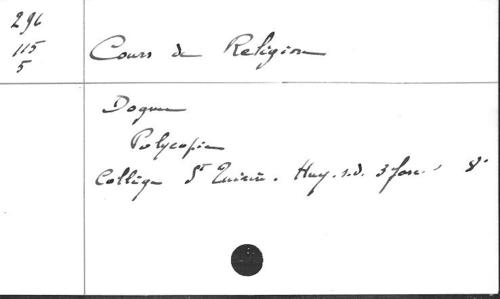 296
115
5
Cours de Religion
Dogme
Polycopie
Collège St Quirin. Huy. s.d. 3 fasc. 8°